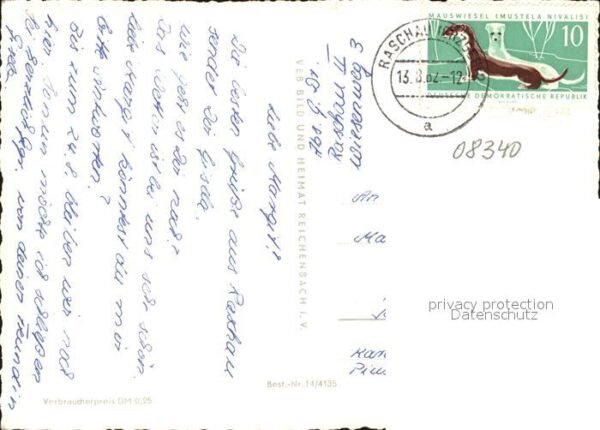 Liebe Margit!
Die besten Grüße aus Raschau
sendet dir Gisela.
Wie geht es dir noch?
Das Wetter ist bei uns sehr schön.
Liebe Margit könntest du mir
bitte antworten?
Bis zum 24.8. bleiben wir noch
hier. Nun möchte ich schließen
Es
von deiner Freundin
Gisela
Raschau II
Wiesenweg 3
MAUSWIESEL (MUSTELA NIVALIS)
10
DEUTSCHE DEMOKRATISCHE REPUBLIK
RASCHAU (ERZGEB)
13.8.62-12
a
08340
An
Ma
Kar
VEB BILD UND HEIMAT REICHENBACH I. V.
privacy protection
Datenschutz
Best.-Nr. 14/4135
Verbraucherpreis DM 0,25